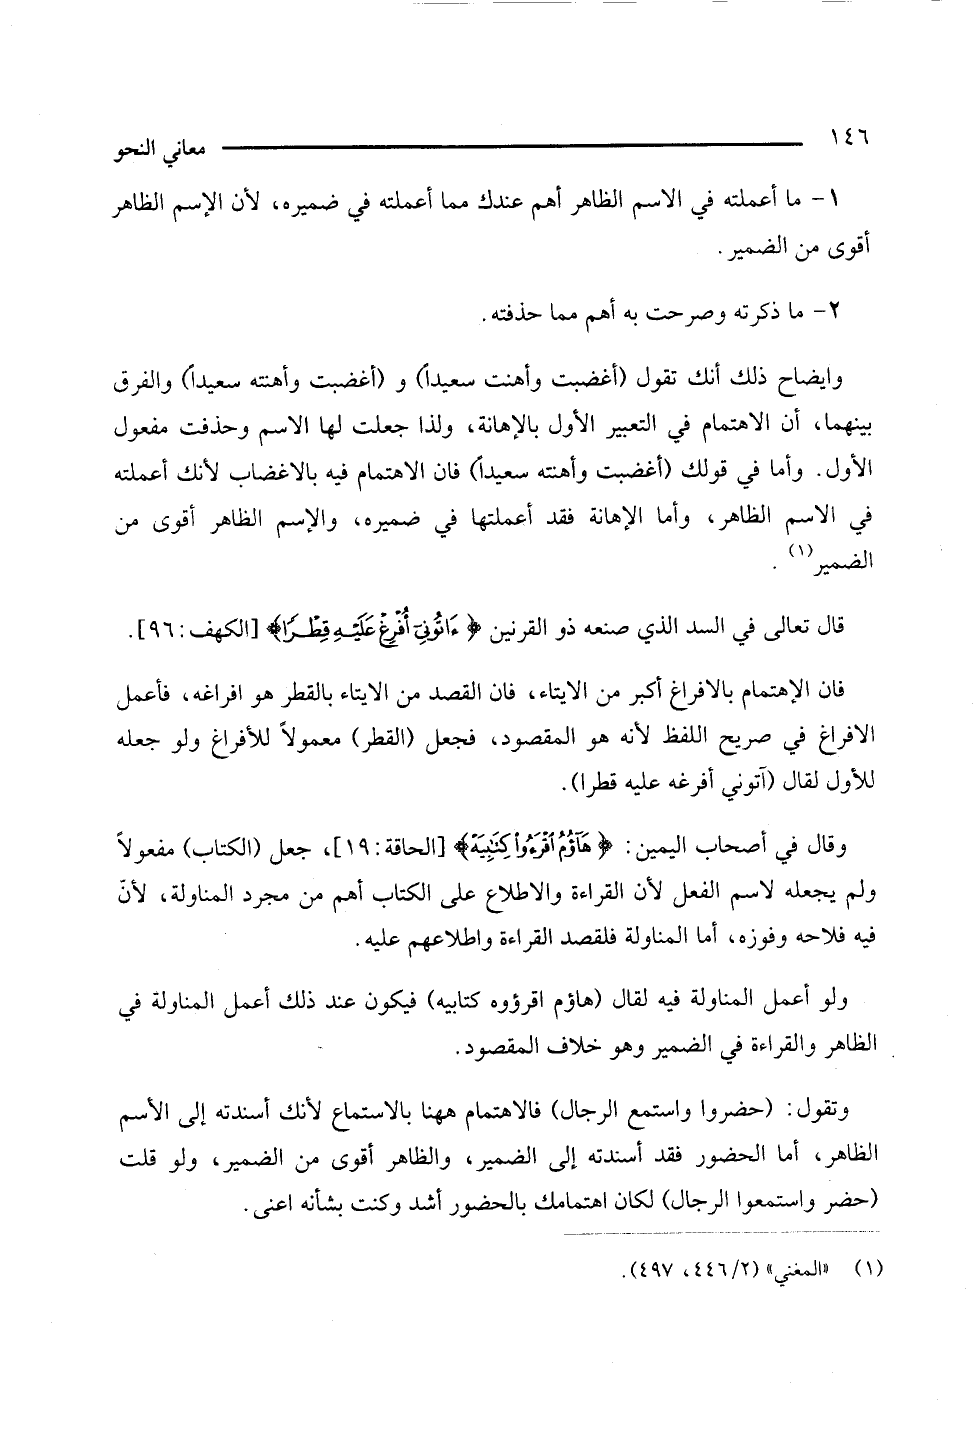 ١٤٦ معاني النحو
١- ما أعملته في الاسم الظاهر أهم عندك مما أعملته في ضميره، لأن الإسم الظاهر
أقوى من الضمير.
٢- ما ذكرته وصرحت به أهم مما حذفته.
وايضاح ذلك أنك تقول (أغضبت وأهنت سعيداً) و (أغضبت وأهنته سعيداً) والفرق
بينهما، أن الاهتمام في التعبير الأول بالإهانة، ولذا جعلت لها الاسم وحذفت مفعول
الأول. وأما في قولك (أغضبت وأهنته سعيداً) فان الاهتمام فيه بالاغضاب لأنك أعملته
في الاسم الظاهر، وأما الإهانة فقد أعملتها في ضميره، والإسم الظاهر أقوى من
الضمير(١).
قال تعالى في السد الذي صنعه ذو القرنين ﴿ءَاتُونِىٓ أُفْرِغْ عَلَيْهِ قِطْرًا﴾ [الكهف: ٩٦].
فان الإهتمام بالافراغ أكبر من الايتاء، فان القصد من الايتاء بالقطر هو افراغه، فأعمل
الافراغ في صريح اللفظ لأنه هو المقصود، فجعل (القطر) معمولاً للأفراغ ولو جعله
للأول لقال (آتوني أفرغه عليه قطرا).
وقال في أصحاب اليمين: ﴿هَآؤُمُ ٱقْرَءُوا۟ كِتَٰبِيَهْ﴾ [الحاقة: ١٩]، جعل (الكتاب) مفعولاً
ولم يجعله لاسم الفعل لأن القراءة والاطلاع على الكتاب أهم من مجرد المناولة، لأنّ
فيه فلاحه وفوزه، أما المناولة فلقصد القراءة واطلاعهم عليه.
ولو أعمل المناولة فيه لقال (هاؤم اقرؤوه كتابيه) فيكون عند ذلك أعمل المناولة في
الظاهر والقراءة في الضمير وهو خلاف المقصود.
وتقول: (حضروا واستمع الرجال) فالاهتمام ههنا بالاستماع لأنك أسندته إلى الأسم
الظاهر، أما الحضور فقد أسندته إلى الضمير، والظاهر أقوى من الضمير، ولو قلت
(حضر واستمعوا الرجال) لكان اهتمامك بالحضور أشد وكنت بشأنه اعنى.
(١) «المغني» (٢/ ٤٤٦، ٤٩٧).